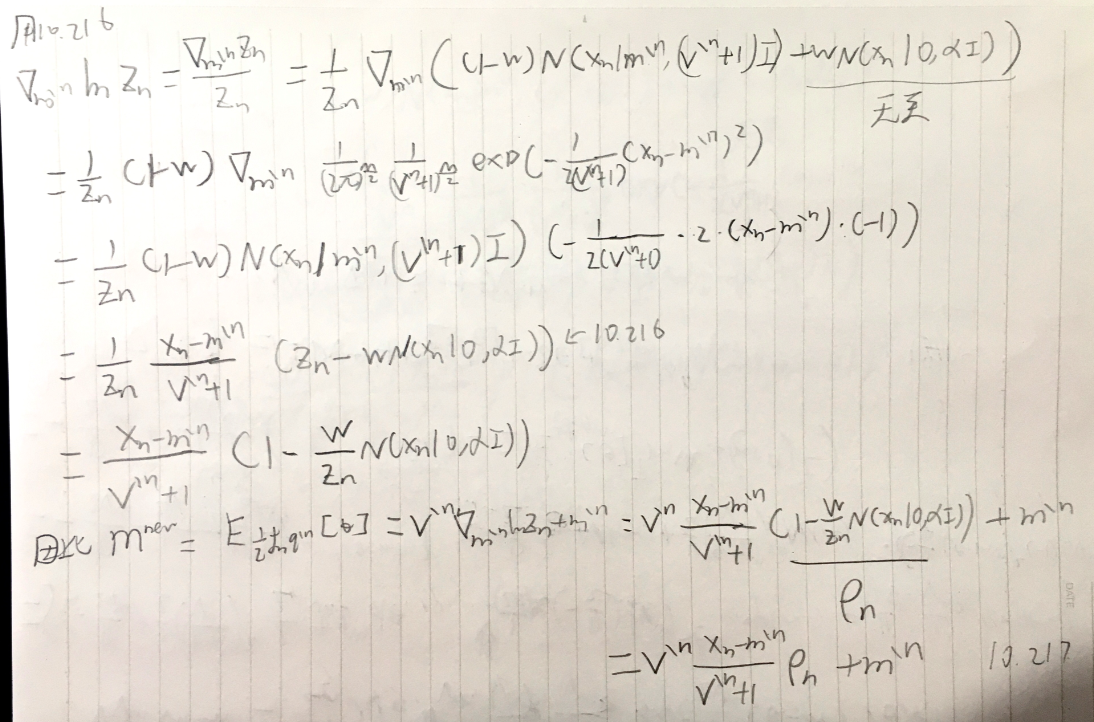 用10.216
∇_{m^{\n}} ln Z_n = ∇_{m^{\n}} Z_n / Z_n = 1/Z_n ∇_{m^{\n}} ( (1-w) N(x_n|m^{\n}, (v^{\n}+1)I) + wN(x_n|0, αI) )
无关
= 1/Z_n (1-w) ∇_{m^{\n}} 1/(2π)^{n/2} 1/(v^{\n}+1)^{n/2} exp(- 1/2(v^{\n}+1) (x_n-m^{\n})^2)
= 1/Z_n (1-w) N(x_n|m^{\n}, (v^{\n}+1)I) (- 1/2(v^{\n}+1) · 2 · (x_n-m^{\n}) · (-1))
= 1/Z_n (x_n-m^{\n})/(v^{\n}+1) (Z_n - wN(x_n|0, αI)) ← 10.216
= (x_n-m^{\n})/(v^{\n}+1) (1 - w/Z_n N(x_n|0, αI))
因此 m^{new} = E_{1/Z f_n q^{\n}}[θ] = v^{\n} ∇_{m^{\n}} ln Z_n + m^{\n} = v^{\n} (x_n-m^{\n})/(v^{\n}+1) (1 - w/Z_n N(x_n|0, αI)) + m^{\n}
ρ_n
= v^{\n} (x_n-m^{\n})/(v^{\n}+1) ρ_n + m^{\n} 10.217
DATE